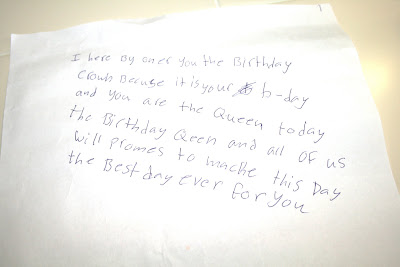 I here By oner you the Birthday
Crown Becuse it is your b-day
and you are the Queen today
the Birthday Qeen and all of us
will promes to mache this Day
the Best day ever for you